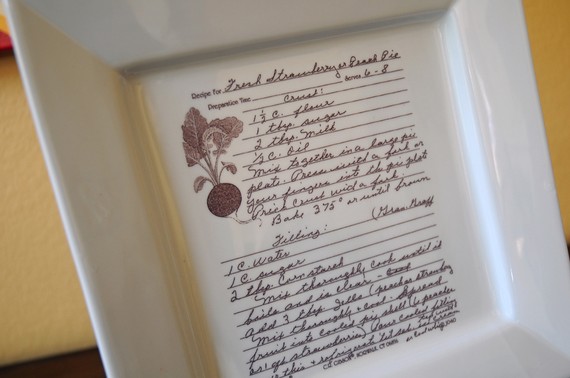 Recipe For: Fresh Strawberry or Peach Pie
Preparation Time Serves 6-8
Crust:
1 1/2 C. flour
1 tbsp. sugar
2 tbsp. Milk
1/2 C. Oil
Mix together in a large pie
plate. Press with a fork or
your fingers into the pie plate
Prick crust with a fork.
Bake 375° or until brown
Filling: (Gram Graff
1 C. Water
1 C. sugar
2 tbsp. Cornstarch
Mix thoroughly cook until it
boils and is clear -
add 3 tbsp. Jello (peach or strawberry
Mix thoroughly & cool. Spread
fruit into cooled pie shell (6 peaches
or 1 qt strawberries) Pour cooled filling
this & refrigerate
or cool whip